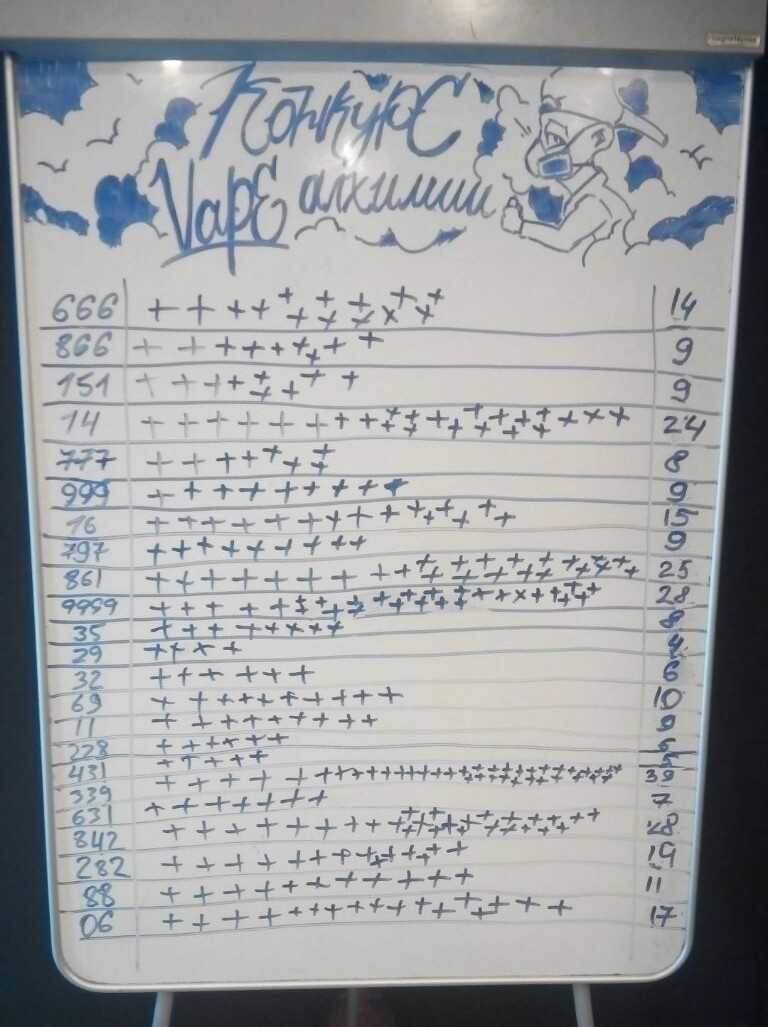 Конкурс
Vape алхимии
666 14
866 9
151 9
14 24
777 8
999 9
16 15
797 9
861 25
9999 28
35 8
29 4
32 6
69 10
11 9
228 6
431 5
339 39
631 7
842 28
282 19
88 11
06 17